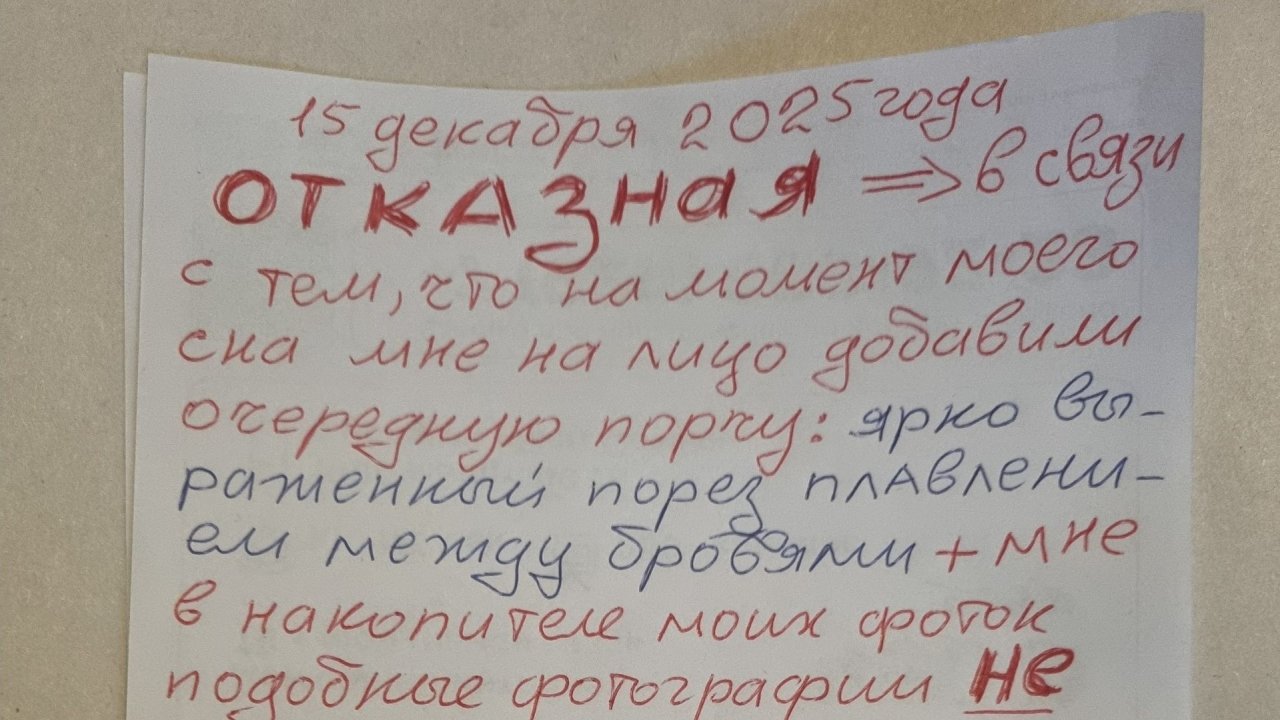 15 декабря 2025 года
ОТКАЗНАЯ ⇒ в связи
с тем, что на момент моего
сна мне на лицо добавили
очередную порчу: ярко вы-
раженный порез плавлени-
ем между бровями + мне
в накопителе моих фоток
подобные фотографии НЕ